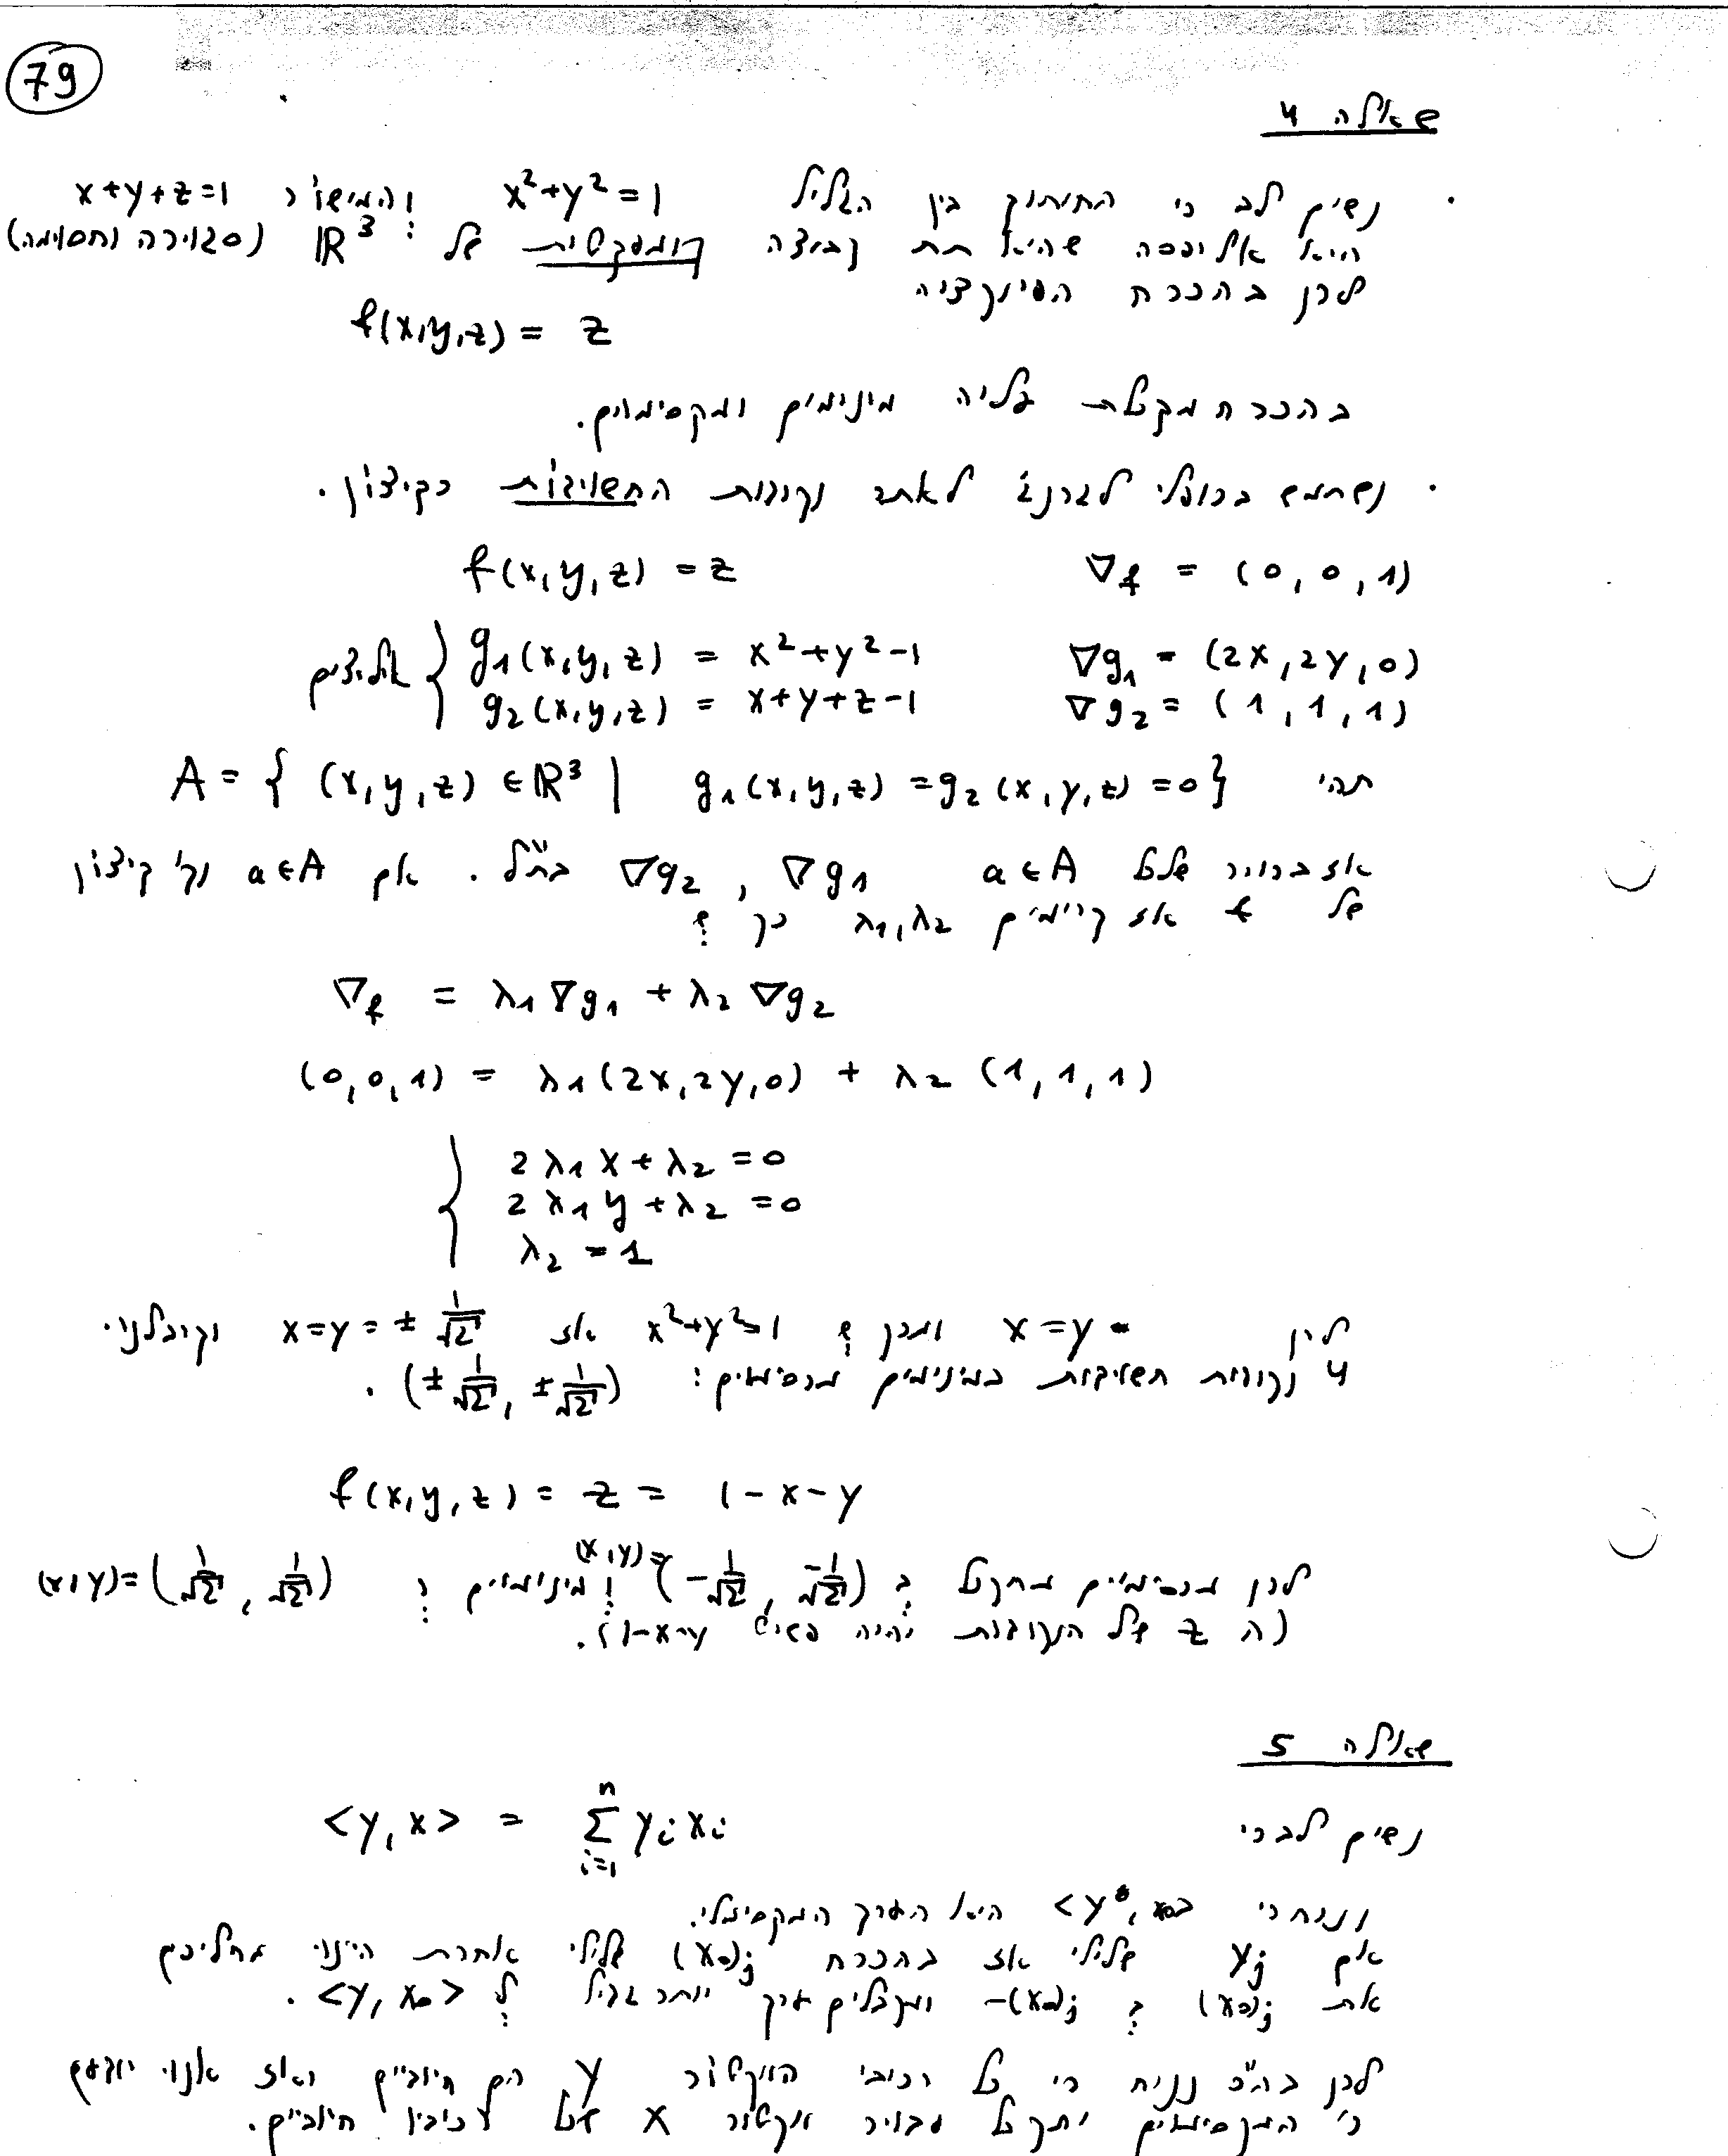 79
שאלה 4
· נשים לב כי החיתוך בין הגליל x²+y²=1 והמישור x+y+z=1
היא אליפסה שהיא תת קבוצה קומפקטית של ℝ³ (סגורה וחסומה)
לכן בהכרח הפונקציה
f(x,y,z) = z
בהכרח מקבלת עליה מינימים ומקסימום.
· נשתמש בכופלי לגרנג' לאתר נקודות החשודות כקיצון.
f(x,y,z) = z ∇f = (0,0,1)
אילוצים { g₁(x,y,z) = x²+y²-1 ∇g₁ = (2x,2y,0)
g₂(x,y,z) = x+y+z-1 ∇g₂ = (1,1,1)
תהי A = { (x,y,z) ∈ ℝ³ | g₁(x,y,z) = g₂(x,y,z) = 0 }
אז ברור שלכל a∈A ∇g₁ , ∇g₂ בת"ל. אם a∈A נק' קיצון
של f אז קיימים λ₁,λ₂ כך ש
∇f = λ₁∇g₁ + λ₂∇g₂
(0,0,1) = λ₁(2x,2y,0) + λ₂(1,1,1)
2λ₁x+λ₂=0
2λ₁y+λ₂=0
λ₂=1
לכן x=y ומכן ש x²+y²=1 אז x=y=±1/√2 וקיבלנו
4 נקודות חשודות כמינימים מכסימום: (±1/√2, ±1/√2).
f(x,y,z) = z = 1-x-y
לכן מכסימום מתקבל ב (x,y)=(-1/√2, -1/√2) ומינימום ב (x,y)=(1/√2, 1/√2)
(ה z של הנקודות יהיה פשוט 1-x-y).
שאלה 5
נשים לב כי <y,x> = Σⁿᵢ₌₁ yᵢxᵢ
ונניח כי <y, x₀> היא הערך המקסימלי.
אם yⱼ שלילי אז בהכרח (x₀)ⱼ שלילי אחרת היינו מחליפים
את (x₀)ⱼ ב -(x₀)ⱼ ומקבלים ערך יותר גדול ל <y,x₀>.
לכן בה"כ נניח כי כל רכיבי הווקטור y הם חיוביים ואז אנו יודעים
כי המקסימום יתקבל עבור וקטור x בעל רכיבים חיוביים.